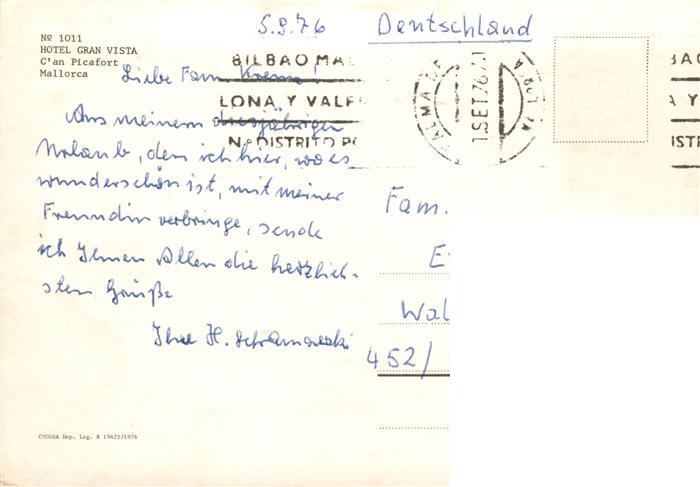 Nº 1011
HOTEL GRAN VISTA
C'an Picafort
Mallorca
5.9.76
Deutschland
BILBAO MA
LONA Y VALE
N.º DISTRITO PO
1.SET.76
BAO
A Y
ISTR
Liebe Fam.
Aus meinem diesjährigen
Urlaub, den ich hier, wo es
wunderschön ist, mit meiner
Freundin verbringe, sende
ich Ihnen Allen die herzlich-
sten Grüße
Ihre H.
Fam.
E
Wal
452/
CYCOSA Dep. Leg. B 19422/1976